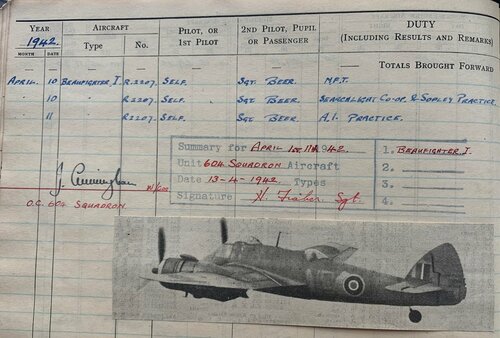 YEAR AIRCRAFT PILOT, OR 2ND PILOT, PUPIL DUTY
1942. Type No. 1ST PILOT OR PASSENGER (INCLUDING RESULTS AND REMARKS)
MONTH DATE
— — — — — — — TOTALS BROUGHT FORWARD
APRIL 10 BEAUFIGHTER I. R2207. SELF. SGT BEER. N.F.T.
" 10 " R2207. SELF. SGT BEER. SEARCHLIGHT CO-OP. & SOPLEY PRACTICE
" 11 " R2207. SELF. SGT BEER. A.I. PRACTICE.
Summary for APRIL 1st, 11th 1942 1. BEAUFIGHTER I.
Unit 604 SQUADRON Aircraft 2.
Date 13-4-1942. Types 3.
Signature Sgt. 4.
J. Cunningham W/CDR
O.C. 604 SQUADRON.